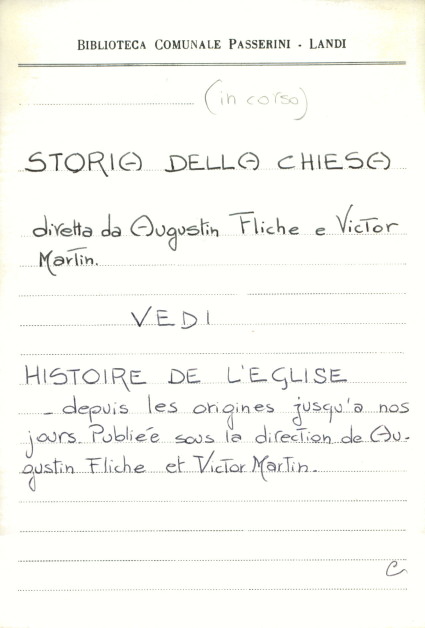 BIBLIOTECA COMUNALE PASSERINI - LANDI
(in corso)
STORIA DELLA CHIESA
diretta da Augustin Fliche e Victor
Martin.
VEDI
HISTOIRE DE L'EGLISE
- depuis les origines jusqu'a nos
jours. Publieé sous la direction de Au-
gustin Fliche et Victor Martin.
C